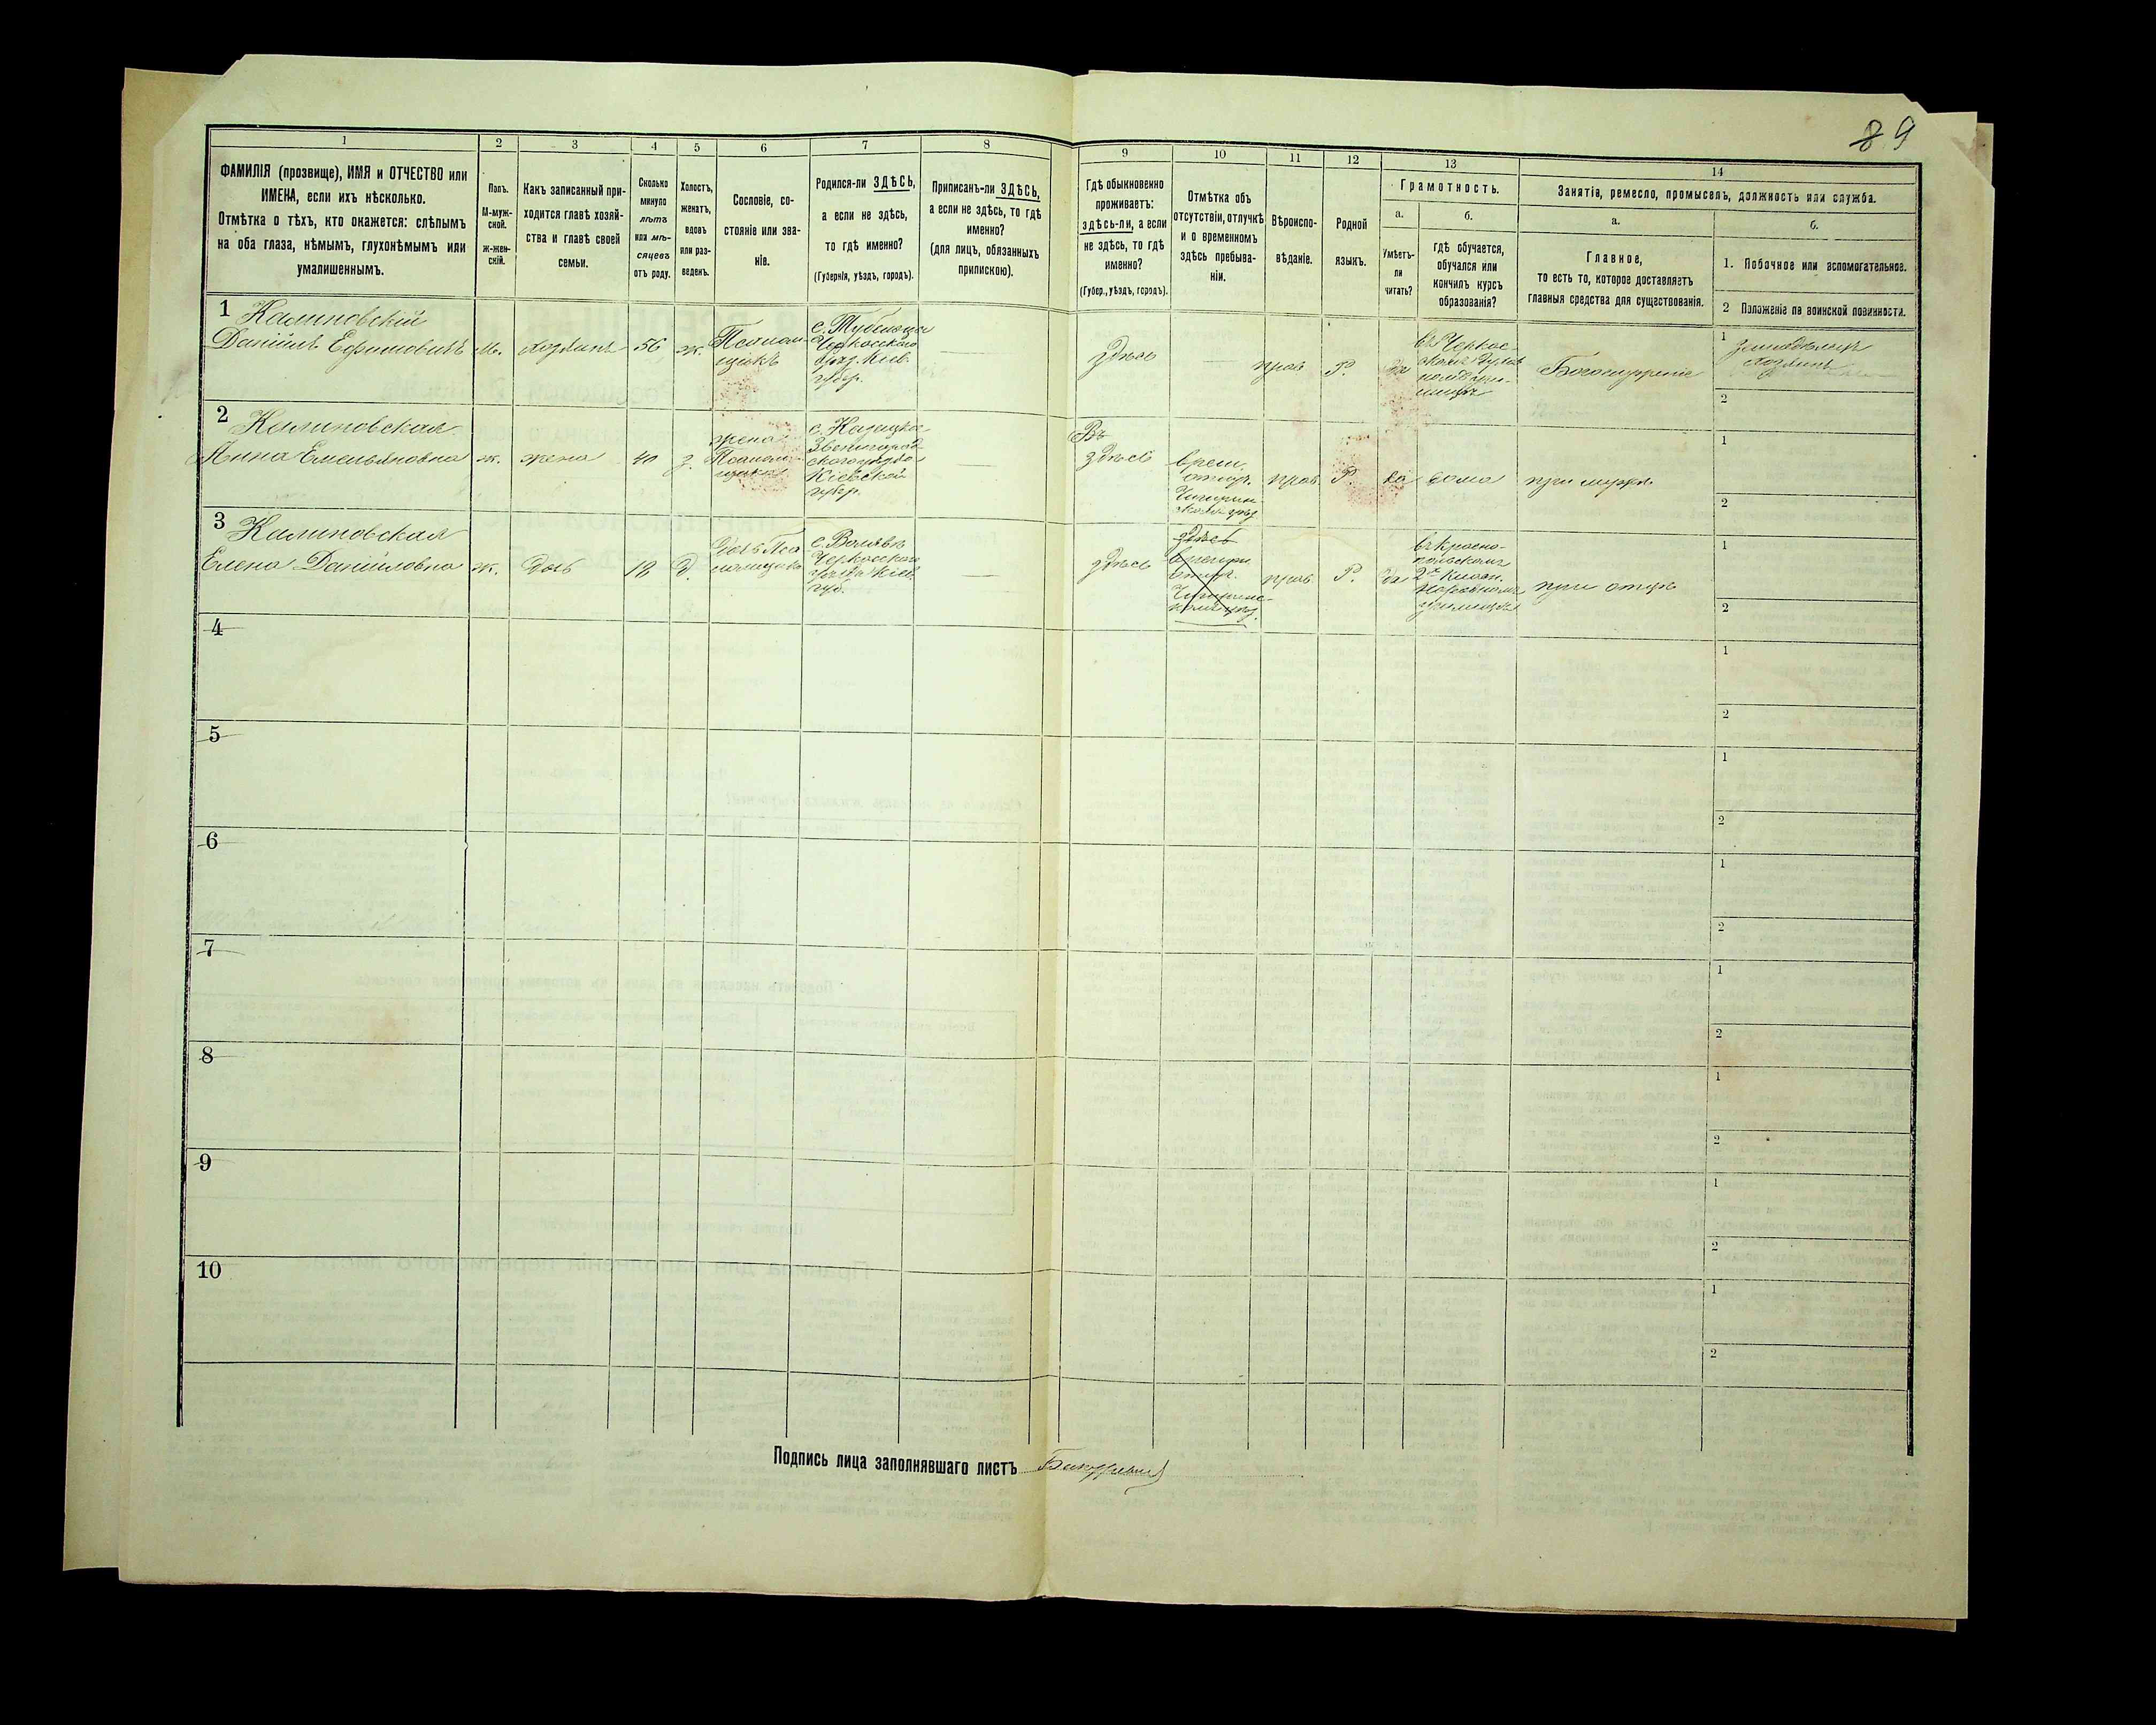 89
1
2
3
4
5
6
7
8
9
10
11
12
13
14
ФАМИЛІЯ (прозвище), ИМЯ и ОТЧЕСТВО или
ИМЕНА, если ихъ нѣсколько.
Отмѣтка о тѣхъ, кто окажется: слѣпымъ
на оба глаза, нѣмымъ, глухонѣмымъ или
умалишеннымъ.
Полъ.
М-муж-
ской.
ж-жен-
скій.
Какъ записанный при-
ходится главѣ хозяй-
ства и главѣ своей
семьи.
Сколько
минуло
лѣтъ
или мѣ-
сяцевъ
отъ роду.
Холостъ,
женатъ,
вдовъ
или раз-
веденъ.
Сословіе, со-
стояніе или зва-
ніе.
Родился-ли ЗДѢСЬ,
а если не здѣсь,
то гдѣ именно?
(Губернія, уѣздъ, городъ).
Приписанъ-ли ЗДѢСЬ,
а если не здѣсь, то гдѣ
именно?
(для лицъ, обязанныхъ
припискою).
Гдѣ обыкновенно
проживаетъ:
здѣсь-ли, а если
не здѣсь, то гдѣ
именно?
(Губер., уѣздъ, городъ).
Отмѣтка объ
отсутствіи, отлучкѣ
и о временномъ
здѣсь пребыва-
ніи.
Вѣроиспо-
вѣданіе.
Родной
языкъ.
Грамотность.
а.
Умѣетъ-
ли
читать?
б.
гдѣ обучается,
обучался или
кончилъ курсъ
образованія?
Занятіе, ремесло, промыселъ, должность или служба.
а.
Главное,
то есть то, которое доставляетъ
главныя средства для существованія.
б.
1. Побочное или вспомогательное.
2 Положеніе по воинской повинности.
1 Калиновскій
Даніилъ Ефимовичъ
м.
хозяинъ
56
ж.
Псалом-
щикъ
Черкасскаго
уѣзд. Кіев.
губер.
—
здѣсь
—
прав
Р.
да
въ Черкас-
Богослуженіе
1
Земледѣлецъ
хозяинъ
2
2 Калиновская
Анна Емельяновна
ж.
жена
40
з.
жена
Псалом-
щика
Звенигород-
скаго уѣзда
Кіевской
губер.
—
Въ
здѣсь
врем.
отлуч.
Чигирин-
скомъ уѣз
прав.
Р.
да
дома
при мужѣ
1
2
3 Калиновская
Елена Даніиловна
ж.
дочь
18
д.
дочь Пса
ломщика
с. Валявѣ
Черкасскаго
уѣзда Кіев.
губ.
—
здѣсь
здѣсь
времен.
отлуч.
Чигирин-
скомъ уѣз.
прав.
Р.
да
въ Красно-
польскомъ
2хъ класн.
Народномъ
училищѣ
при отцѣ
1
2
4
1
2
5
1
2
6
1
2
7
1
2
8
1
2
9
1
2
10
1
2
Подпись лица заполнявшаго листъ